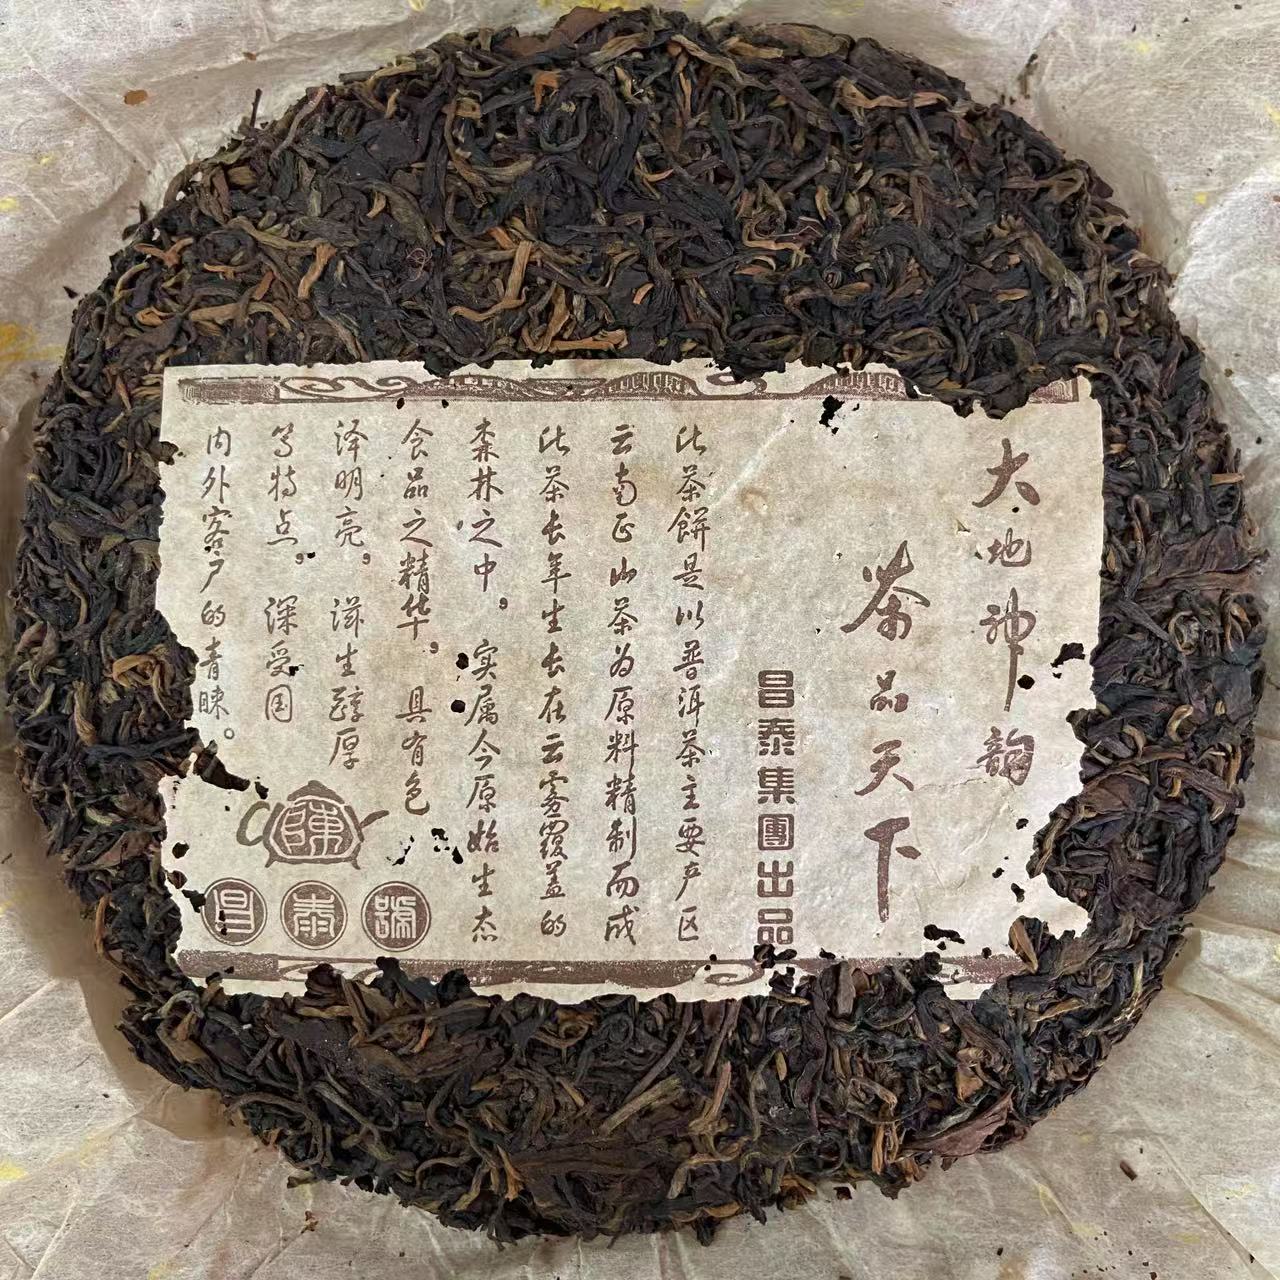 大地神韵
茶品天下
昌泰集團出品
此茶餅是以普洱茶主要产区
云南正山茶为原料精制而成
此茶长年生长在云雾覆盖的
森林之中，实属今原始生态
食品之精华，具有色
泽明亮，滋生醇厚
等特点，深受国
内外客户的青睐。
陳
昌泰號